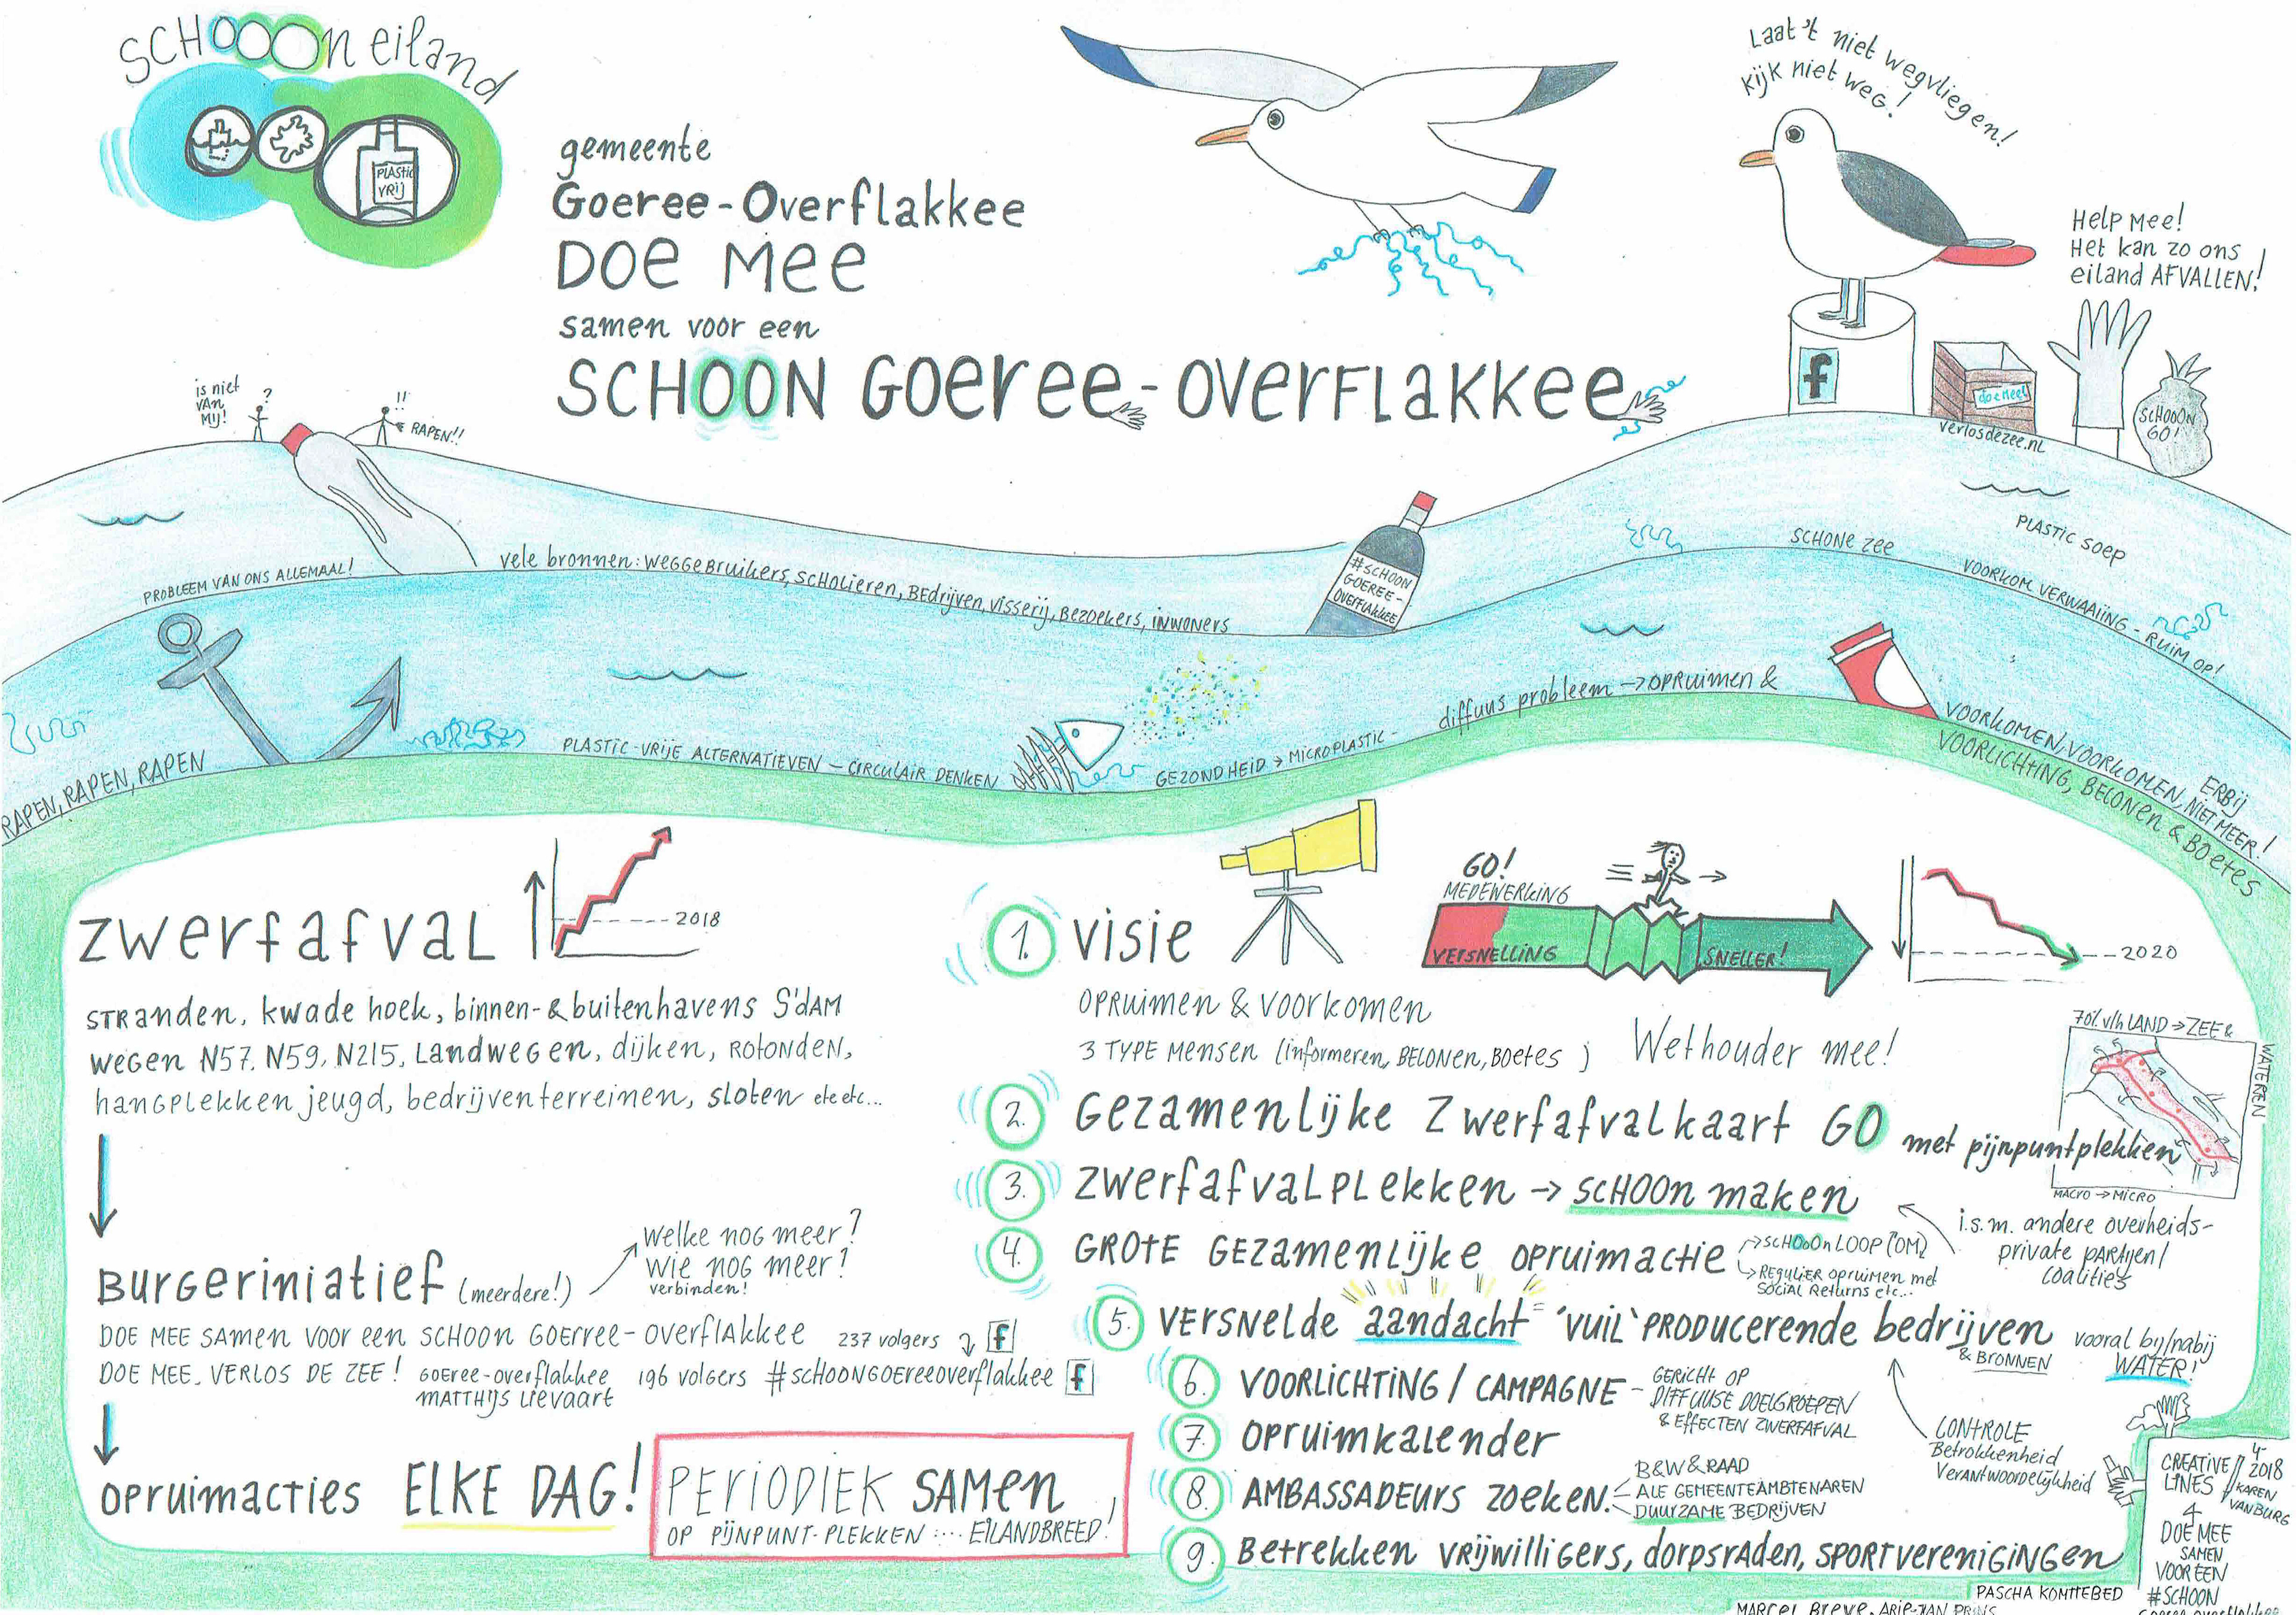 SCHOOON eiland
PLASTIC
VRIJ
gemeente
Goeree-Overflakkee
DOE MEE
samen voor een
SCHOON GOEREE-OVERFLAKKEE
Laat 't niet wegvliegen!
Kijk niet weg!
Help Mee!
Het kan zo ons
eiland AFVALLEN!
f
doe mee!
verlosdezee.nl
SCHOOON
GO!
is niet
VAN
MIJ!
?
!!
RAPEN!!
PROBLEEM VAN ONS ALLEMAAL!
Vele bronnen: WEGGEBRUIKERS, SCHOLIEREN, BEDRIJVEN, VISSERIJ, BEZOEKERS, INWONERS
#SCHOON
GOEREE-
OVERFLAKKEE
SCHONE ZEE
PLASTIC SOEP
VOORKOM VERWAAIING - RUIM OP!
RAPEN, RAPEN, RAPEN
PLASTIC-VRIJE ALTERNATIEVEN – CIRCULAIR DENKEN
GEZONDHEID → MICROPLASTIC -
diffuus probleem → OPRUIMEN &
VOORKOMEN, VOORKOMEN, NIET MEER!
ERBIJ
VOORLICHTING, BELONEN & BOETES
ZWERFAFVAL
2018
STRANDEN, kwade hoek, binnen- & buitenhavens S'DAM
WEGEN N57, N59, N215, LANDWEGEN, dijken, ROTONDEN,
HANGPLEKKEN jeugd, bedrijventerreinen, sloten etc etc...
BURGERINIATIEF (meerdere!)
Welke nog meer?
Wie nog meer?
verbinden!
DOE MEE SAMEN VOOR EEN SCHOON GOERREE-OVERFLAKKEE 237 volgers f
DOE MEE, VERLOS DE ZEE! GOEREE-overflakkee 196 volgers #SCHOONGOEREEOVERFLAKKEE f
MATTHIJS LIEVAART
OPRUIMACTIES ELKE DAG!
PERIODIEK SAMEN
OP PIJNPUNT-PLEKKEN .... EILANDBREED!
1. VISIE
GO!
MEDEWERKING
VERSNELLING
SNELLER!
2020
OPRUIMEN & VOORKOMEN
3 TYPE MENSEN (informeren, BELONEN, BOETES) Wethouder mee!
70% v/h LAND → ZEE &
WATEREN
MACRO → MICRO
2. GEZAMENLIJKE ZWERFAFVALKAART GO met pijnpuntplekken
3. ZWERFAFVALPLEKKEN → SCHOON MAKEN
i.s.m. andere overheids-
private PARtijen/
coalities
4. GROTE GEZAMENLIJKE OPRUIMACTIE
SCHOOON LOOP (OM)
REGULIER OPRUIMEN met
SOCIAL Returns etc...
5. VERSNELDE aandacht 'VUIL' PRODUCERENDE bedrijven
& BRONNEN
vooral bij/nabij
WATER!
6. VOORLICHTING / CAMPAGNE -
GERICHT OP
DIFFUUSE DOELGROEPEN
& EFFECTEN ZWERFAFVAL
7. OPRUIMKALENDER
CONTROLE
Betrokkenheid
Verantwoordelijkheid
8. AMBASSADEURS ZOEKEN.
B&W & RAAD
ALE GEMEENTEAMBTENAREN
DUURZAME BEDRIJVEN
9. Betrekken VRIJWILLIGERS, DORPSRADEN, SPORTVERENIGINGEN
CREATIVE
LINES
4-
2018
KAREN
VAN BURG
DOE MEE
SAMEN
VOOR EEN
#SCHOON
PASCHA KOMTEBED
MARCEL BREVE, ARIE-JAN PRINS